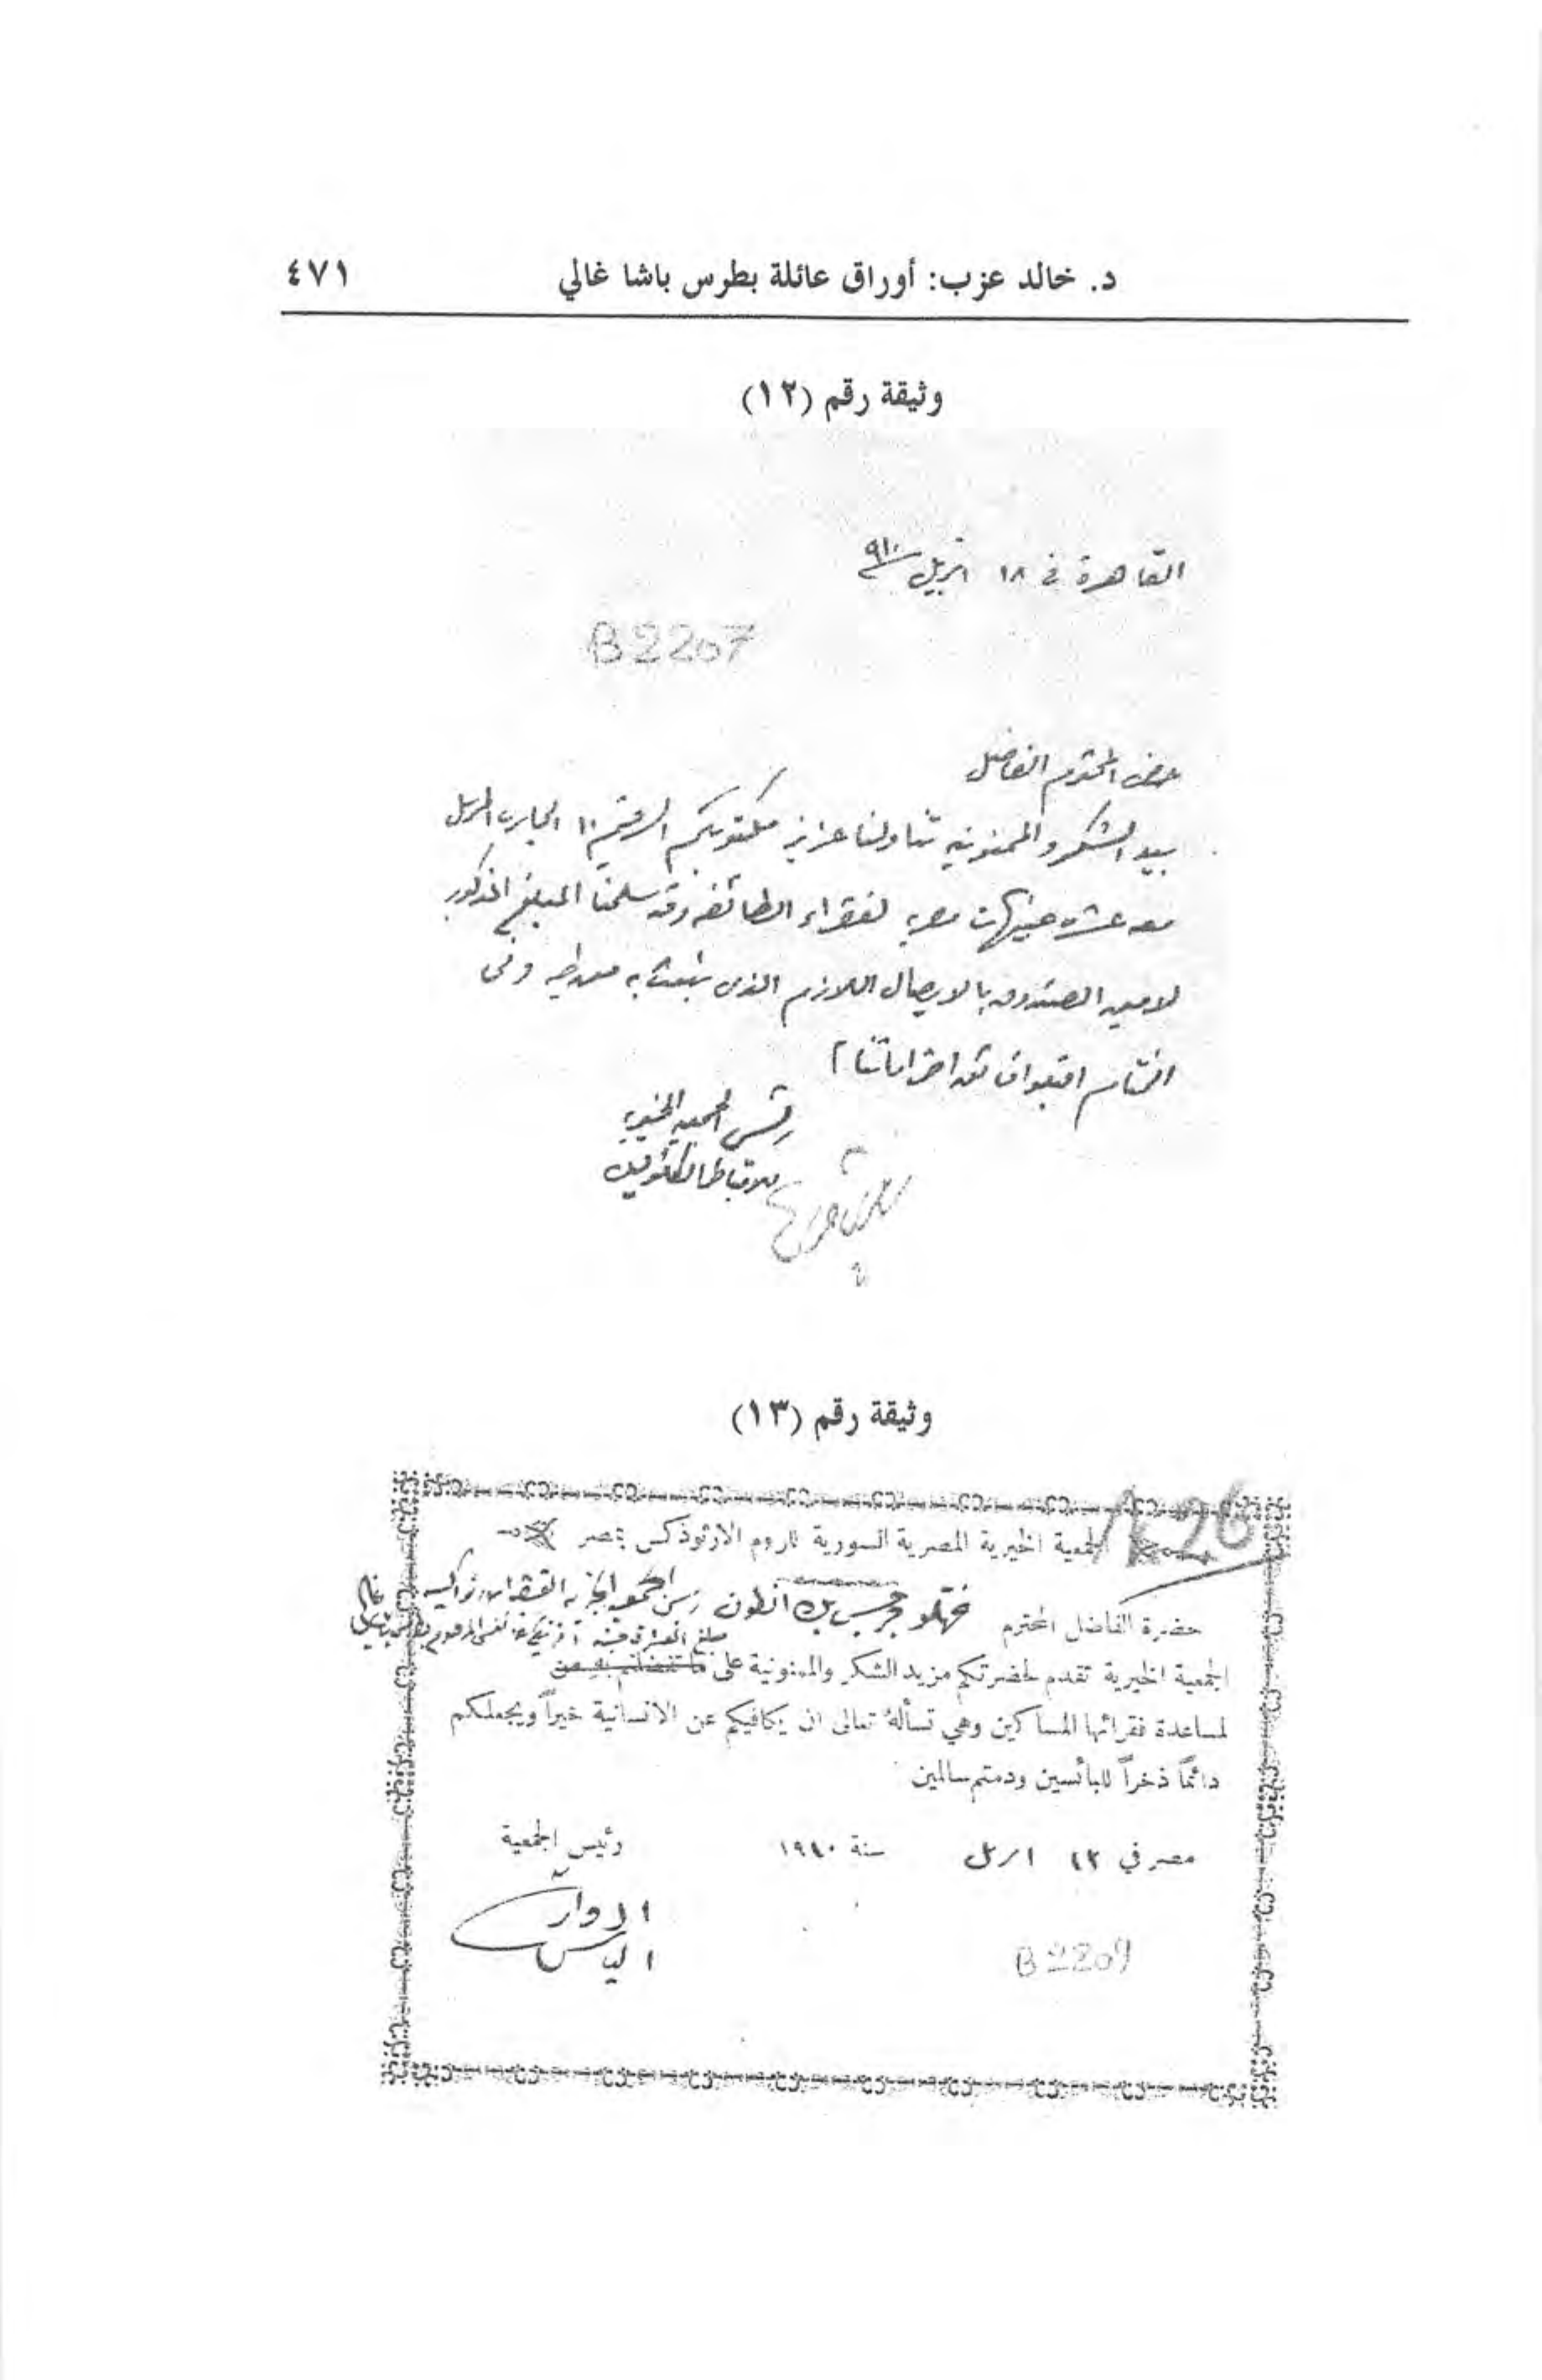 د. خالد عزب: أوراق عائلة بطرس باشا غالي ٤٧١
وثيقة رقم (١٢)
القاهرة في ١٨ ابريل ٩١٠
B2207
المحترم الفاضل
بيد الشكر والممنونيه تناولنا عزيز مكتوبكم الرقيم ١٠ الجارى المرسل
معه عشره جنيهات مصريه لفقراء الطائفه وقد سلمنا المبلغ المذكور
لامين الصندوق بالايصال اللازم الذى بعث به وفى
الختام اقبلوا احتراماتنا
رئيس الجمعيه الخيريه
للاقباط الكاثوليك
وثيقة رقم (١٣)
26
الجمعية الخيرية المصرية السورية للروم الارثوذكس بمصر
حضرة الفاضل المحترم جرجس بك انطون الجمعيه الخيريه القبطيه
غالي
مبلغ
الجمعية الخيرية تقدم لحضرتكم مزيد الشكر والممنونية على ما تفضلتم به من
لمساعدة فقرائها المساكين وهي تسأله تعالى ان يكافيكم عن الانسانية خيراً ويجعلكم
دائماً ذخراً للبائسين ودمتم سالمين
مصر في ١٢ ابريل سنة ١٩١٠ رئيس الجمعية
الياس
B2209